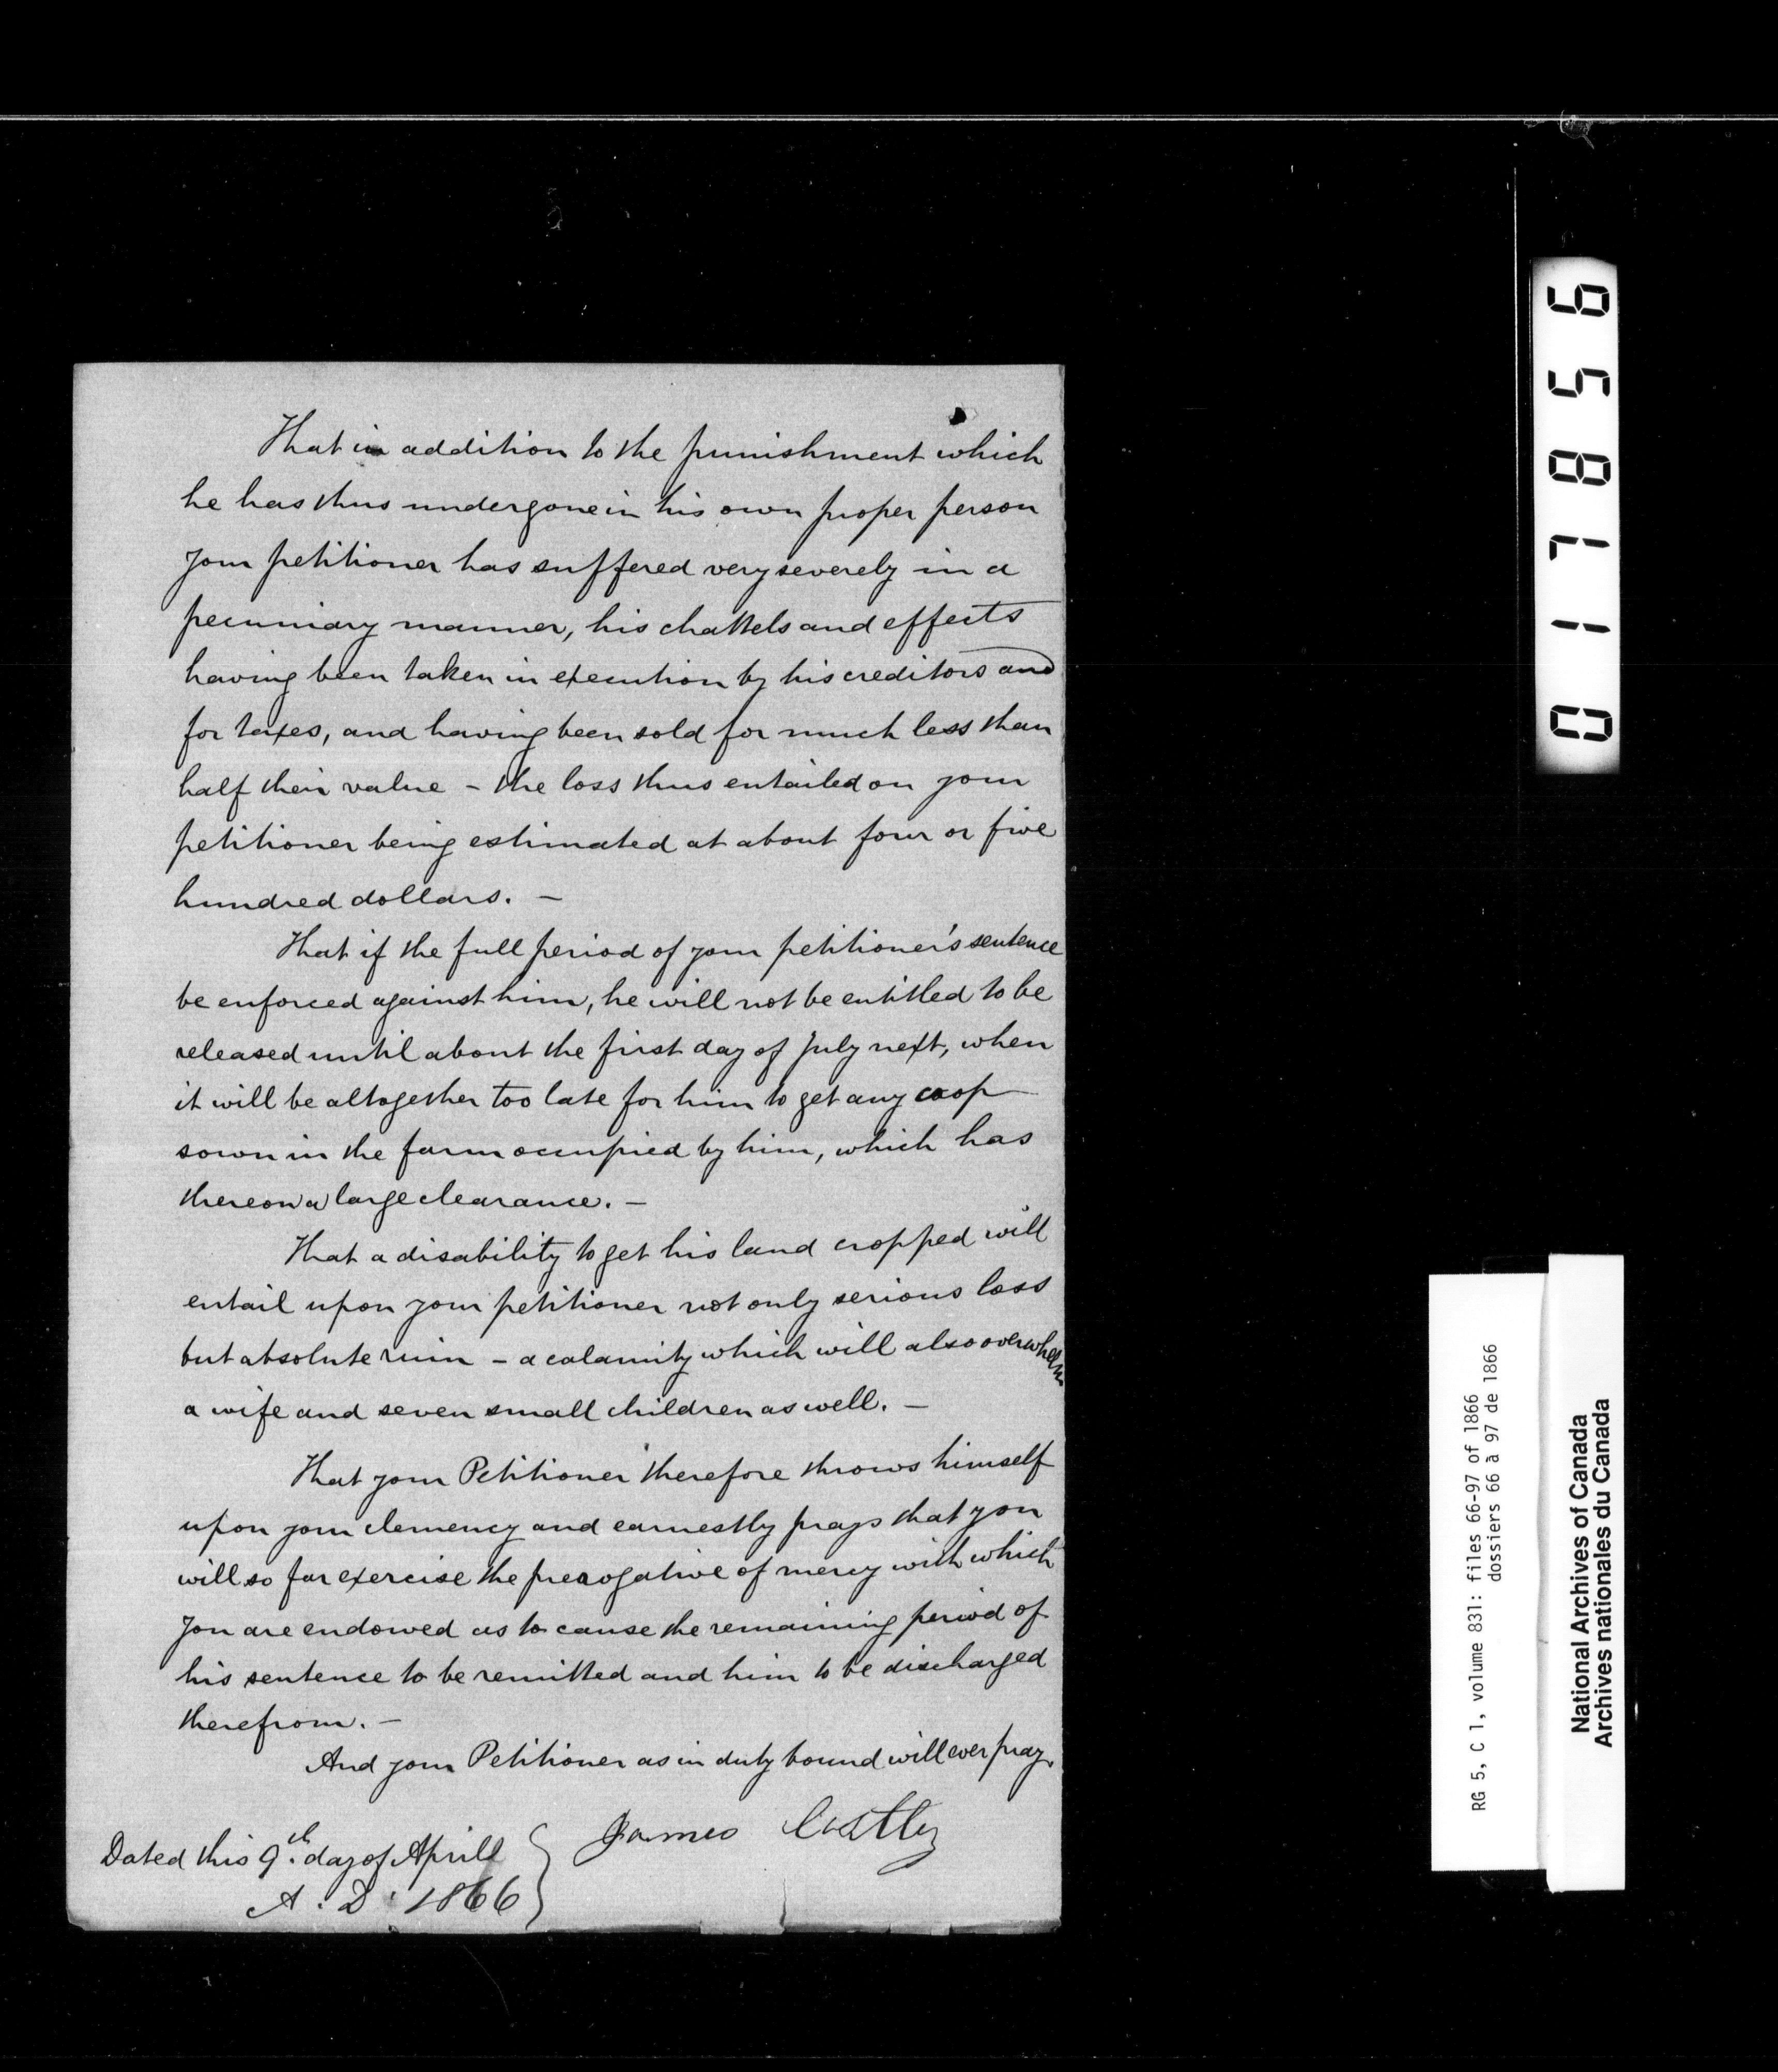 That in addition to the punishment which
he has thus undergone in his own proper person
your petitioner has suffered very severely in a
pecuniary manner, his chattels and effects
having been taken in execution by his creditors and
for taxes, and having been sold for much less than
half their value – the loss thus entailed on your
petitioner being estimated at about four or five
hundred dollars. –
That if the full period of your petitioner's sentence
be enforced against him, he will not be entitled to be
released until about the first day of July next, when
it will be altogether too late for him to get any crop
sown in the farm occupied by him, which has
thereon a large clearance. –
That a disability to get his land cropped will
entail upon your petitioner not only serious loss
but absolute ruin – a calamity which will also overwhelm
a wife and seven small children as well. –
That your Petitioner therefore throws himself
upon your clemency and earnestly prays that you
will so far exercise the prerogative of mercy with which
you are endowed as to cause the remaining period of
his sentence to be remitted and him to be discharged
therefrom. –
And your Petitioner as in duty bound will ever pray.
James
Dated this 9th day of Aprill
A. D. 1866
017856
RG 5, C 1, volume 831: files 66-97 of 1866
dossiers 66 à 97 de 1866
National Archives of Canada
Archives nationales du Canada